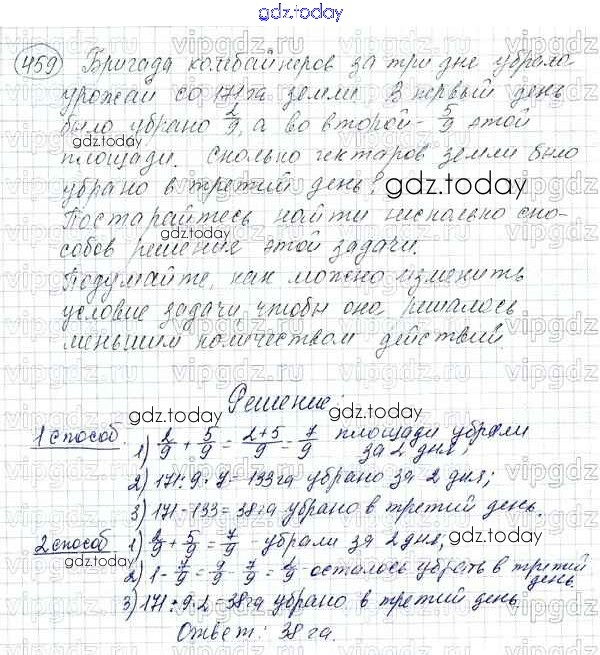 gdz.today
459 Бригада комбайнеров за три дне убрала
урожай со 171 га земли. В первый день
было убрано 2/9, а во второй - 5/9 этой
площади. Сколько гектаров земли было
убрано в третий день?
Постарайтесь найти несколько спо-
собов решения этой задачи.
Подумайте, как можно изменить
условие задачи, чтобы она решалось
меньшим количеством действий.
Решение:
1 способ. 1) 2/9 + 5/9 = 2+5/9 = 7/9 площади убрали за 2 дня;
2) 171:9·7 = 133 га убрано за 2 дня;
3) 171-133 = 38 га убрано в третий день.
2 способ 1) 2/9 + 5/9 = 7/9 - убрали за 2 дня;
2) 1 - 7/9 = 9/9 - 7/9 = 2/9 осталось убрать в третий день.
3) 171:9·2 = 38 га убрано в третий день.
Ответ: 38 га.
gdz.today
gdz.today
gdz.today
gdz.today
gdz.today
gdz.today
gdz.today
gdz.today
vipgdz